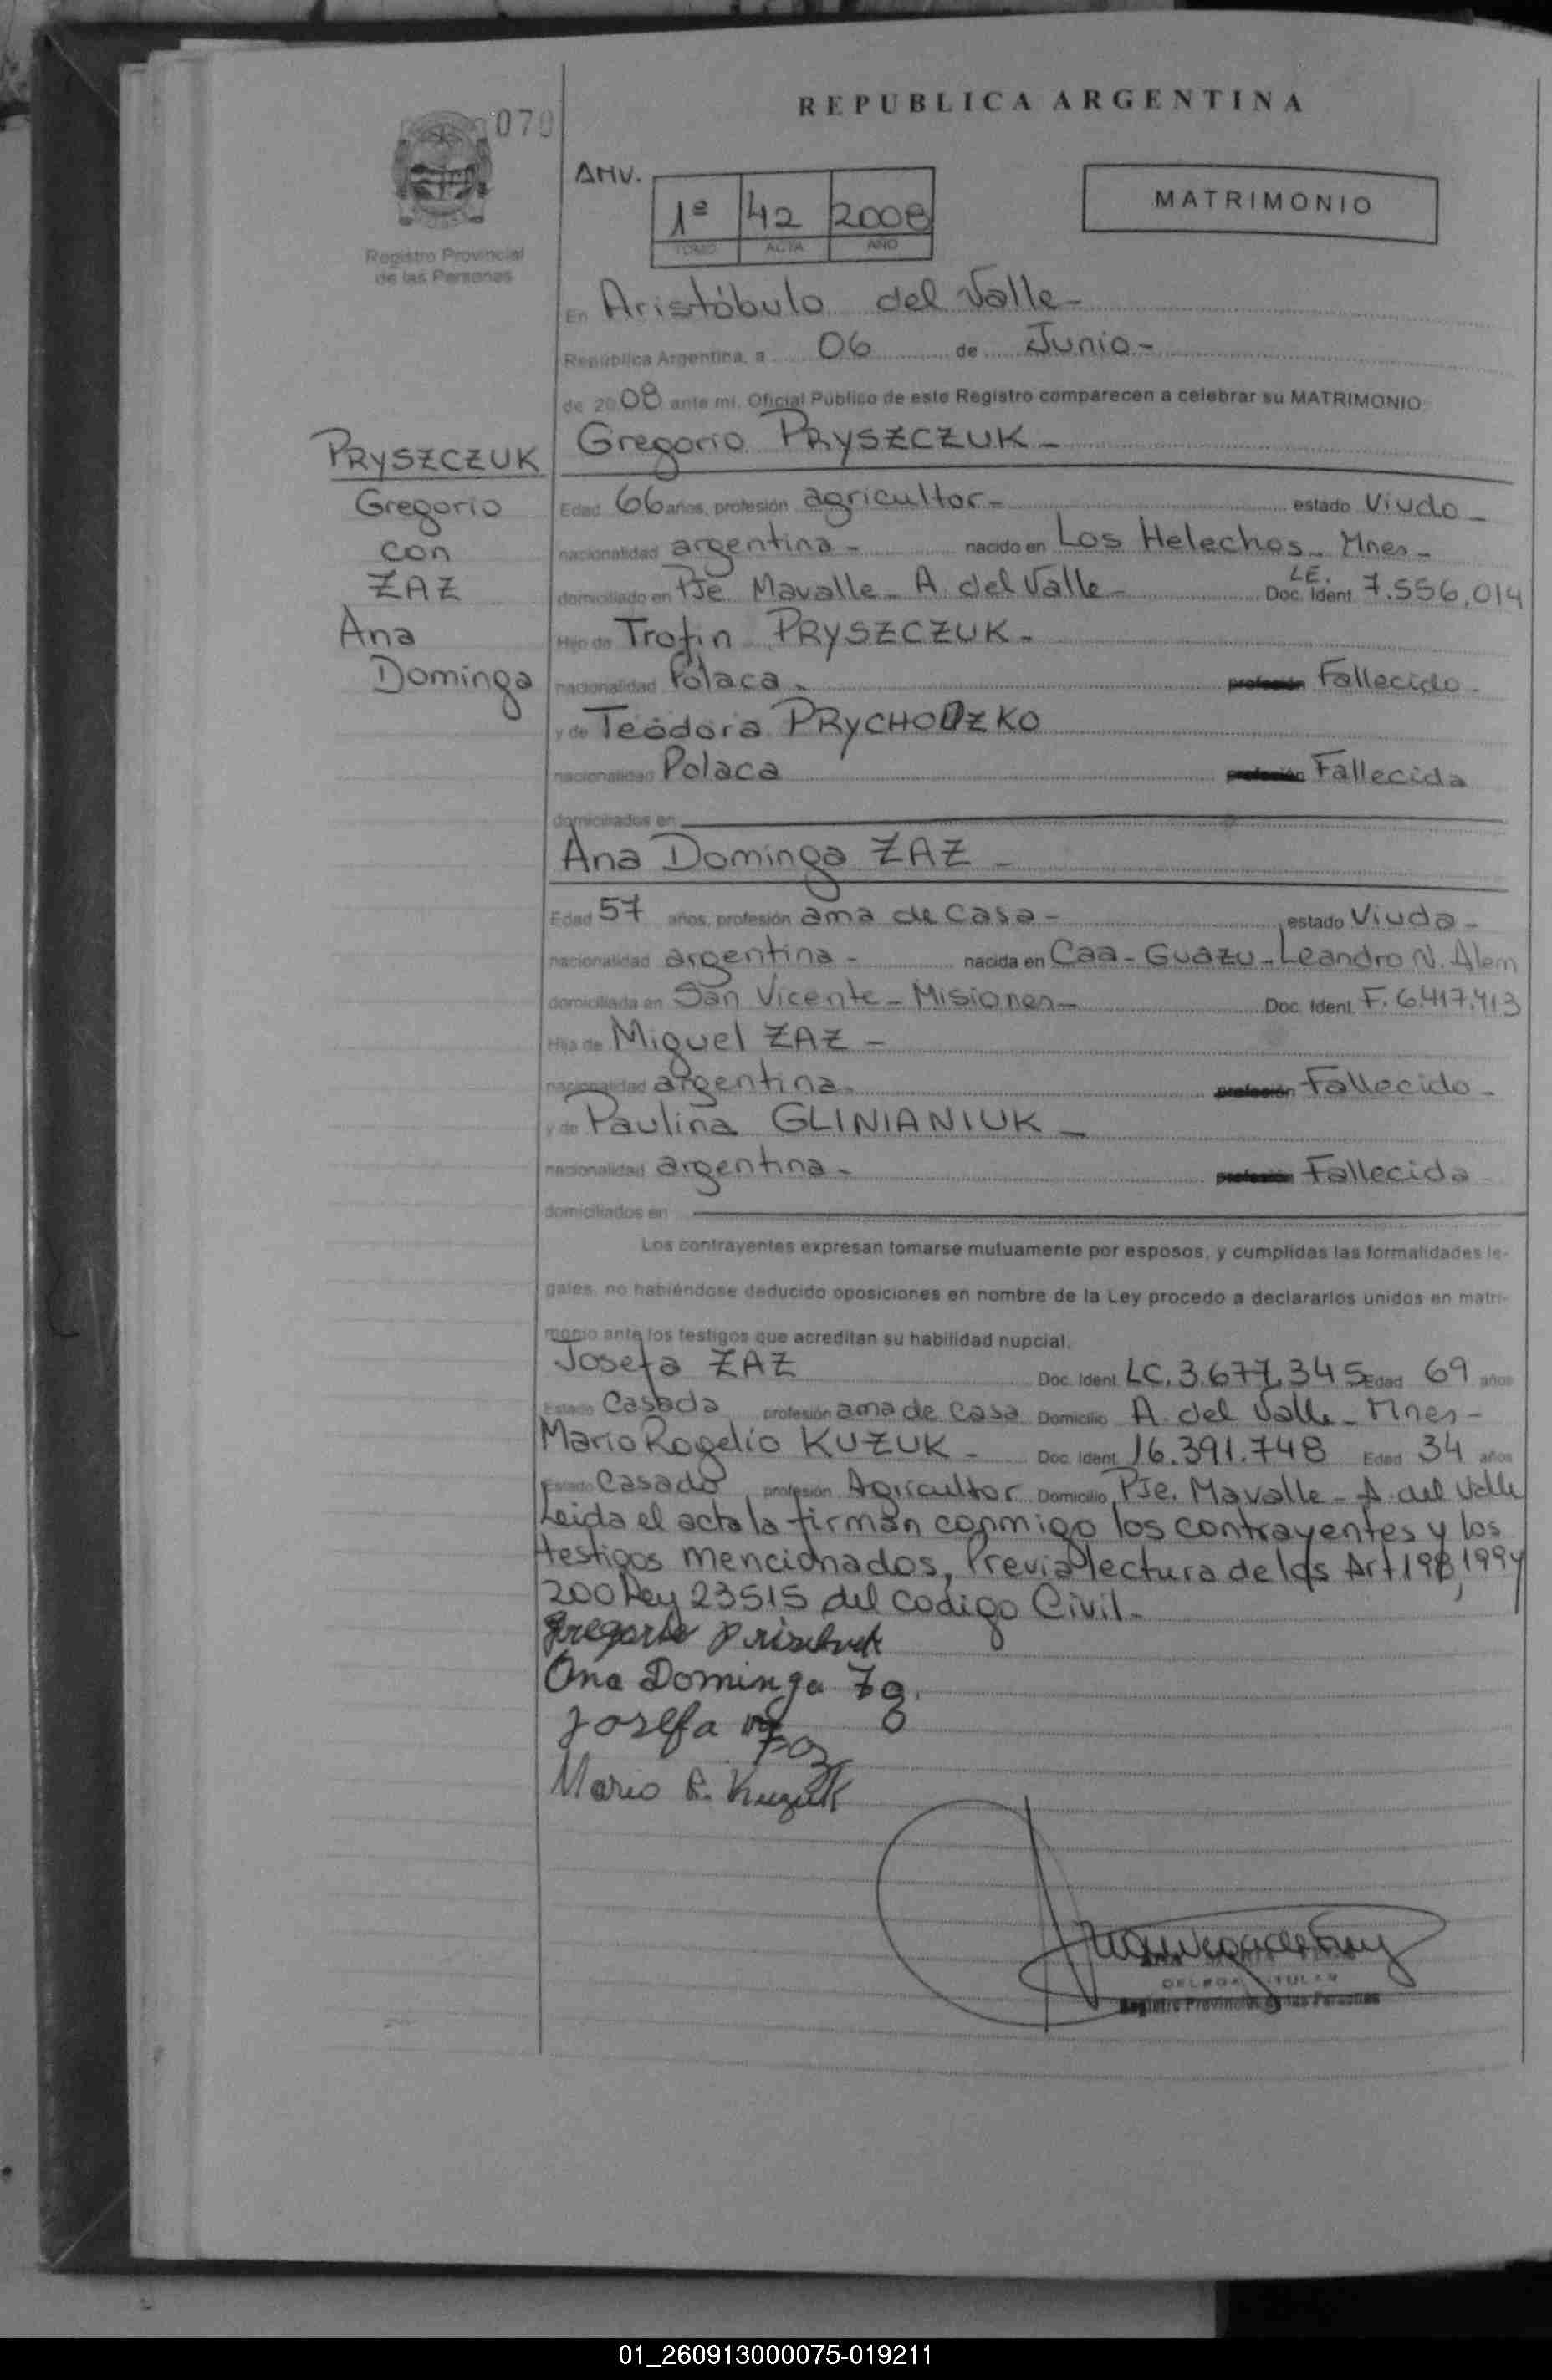 REPUBLICA ARGENTINA
079
AMV.
1º 42 2008
TOMO ACTA AÑO
MATRIMONIO
Registro Provincial
de las Personas
En Aristóbulo del Valle-
República Argentina, a 06 de Junio-
de 2008 ante mi, Oficial Público de este Registro comparecen a celebrar su MATRIMONIO
Gregorio PRYSZCZUK-
PRYSZCZUK
Gregorio
con
ZAZ
Ana
Dominga
Edad 66 años, profesión agricultor- estado Viudo-
nacionalidad argentina- nacido en Los Helechos- Mnes-
domiciliado en Pje Mavalle- A. del Valle- LE. Doc. Ident. 7.556.014
Hijo de Trofin PRYSZCZUK-
nacionalidad Polaca- profesión Fallecido-
y de Teodora PRYCHODZKO
nacionalidad Polaca profesión Fallecida
domiciliados en
Ana Dominga ZAZ-
Edad 57 años, profesión ama de casa- estado Viuda-
nacionalidad argentina- nacida en Caa-Guazu-Leandro N. Alem
domiciliada en San Vicente-Misiones- Doc. Ident. F. 6.417.413
Hija de Miguel ZAZ-
nacionalidad argentina- profesión Fallecido-
y de Paulina GLINIANIUK-
nacionalidad argentina- profesión Fallecida
domiciliados en
Los contrayentes expresan tomarse mutuamente por esposos, y cumplidas las formalidades le-
gales, no habiéndose deducido oposiciones en nombre de la Ley procedo a declararlos unidos en matri-
monio ante los testigos que acreditan su habilidad nupcial.
Josefa ZAZ Doc. Ident. LC. 3.677.345 Edad 69 años
Estado Casada profesión ama de casa Domicilio A. del Valle- Mnes-
Mario Rogelio KUZUK- Doc. Ident. 16.391.748 Edad 34 años
Estado Casado profesión Agricultor Domicilio Pje. Mavalle- A. del Valle
Leida el acta la firman conmigo los contrayentes y los
testigos mencionados, Previa lectura de los Art 198, 199 y
200 Ley 23515 del codigo Civil-
Ana Dominga
Josefa
Mario R. Kuzuk
DELEGADA TITULAR
Registro Provincial de las Personas
01_260913000075-019211